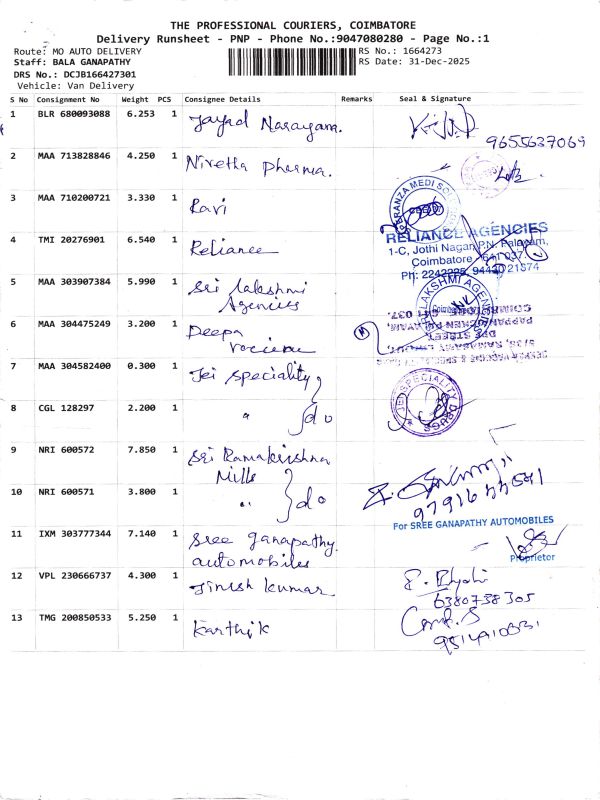 THE PROFESSIONAL COURIERS, COIMBATORE
Delivery Runsheet - PNP - Phone No.:9047080280 - Page No.:1
Route: MO AUTO DELIVERY
RS No.: 1664273
Staff: BALA GANAPATHY
RS Date: 31-Dec-2025
DRS No.: DCJB166427301
Vehicle: Van Delivery
S No Consignment No Weight PCS Consignee Details Remarks Seal & Signature
1 BLR 680093088 6.253 1 Jayad Narayana.
9655637069
2 MAA 713828846 4.250 1 Niretha Pharma.
3 MAA 710200721 3.330 1 Ravi
RELIANCE AGENCIES
1-C, Jothi Nagar, P.N. Palayam,
Coimbatore - 641 037.
4 TMI 20276901 6.540 1 Reliance
Ph: 2242226, 94430 21574
5 MAA 303907384 5.990 1 Sri lakshmi
Agencies
6 MAA 304475249 3.200 1 Deepa
vaccine
7 MAA 304582400 0.300 1 Jei speciality
JEI SPECIALITY DRUGS
8 CGL 128297 2.200 1 " do
9 NRI 600572 7.850 1 Sri Ramakrishna
Mills
10 NRI 600571 3.800 1 " do
For SREE GANAPATHY AUTOMOBILES
11 IXM 303777344 7.140 1 Sree ganapathy
automobiles
Proprietor
12 VPL 230666737 4.300 1 Jinesh kumar
6380738305
13 TMG 200850533 5.250 1 Karthik